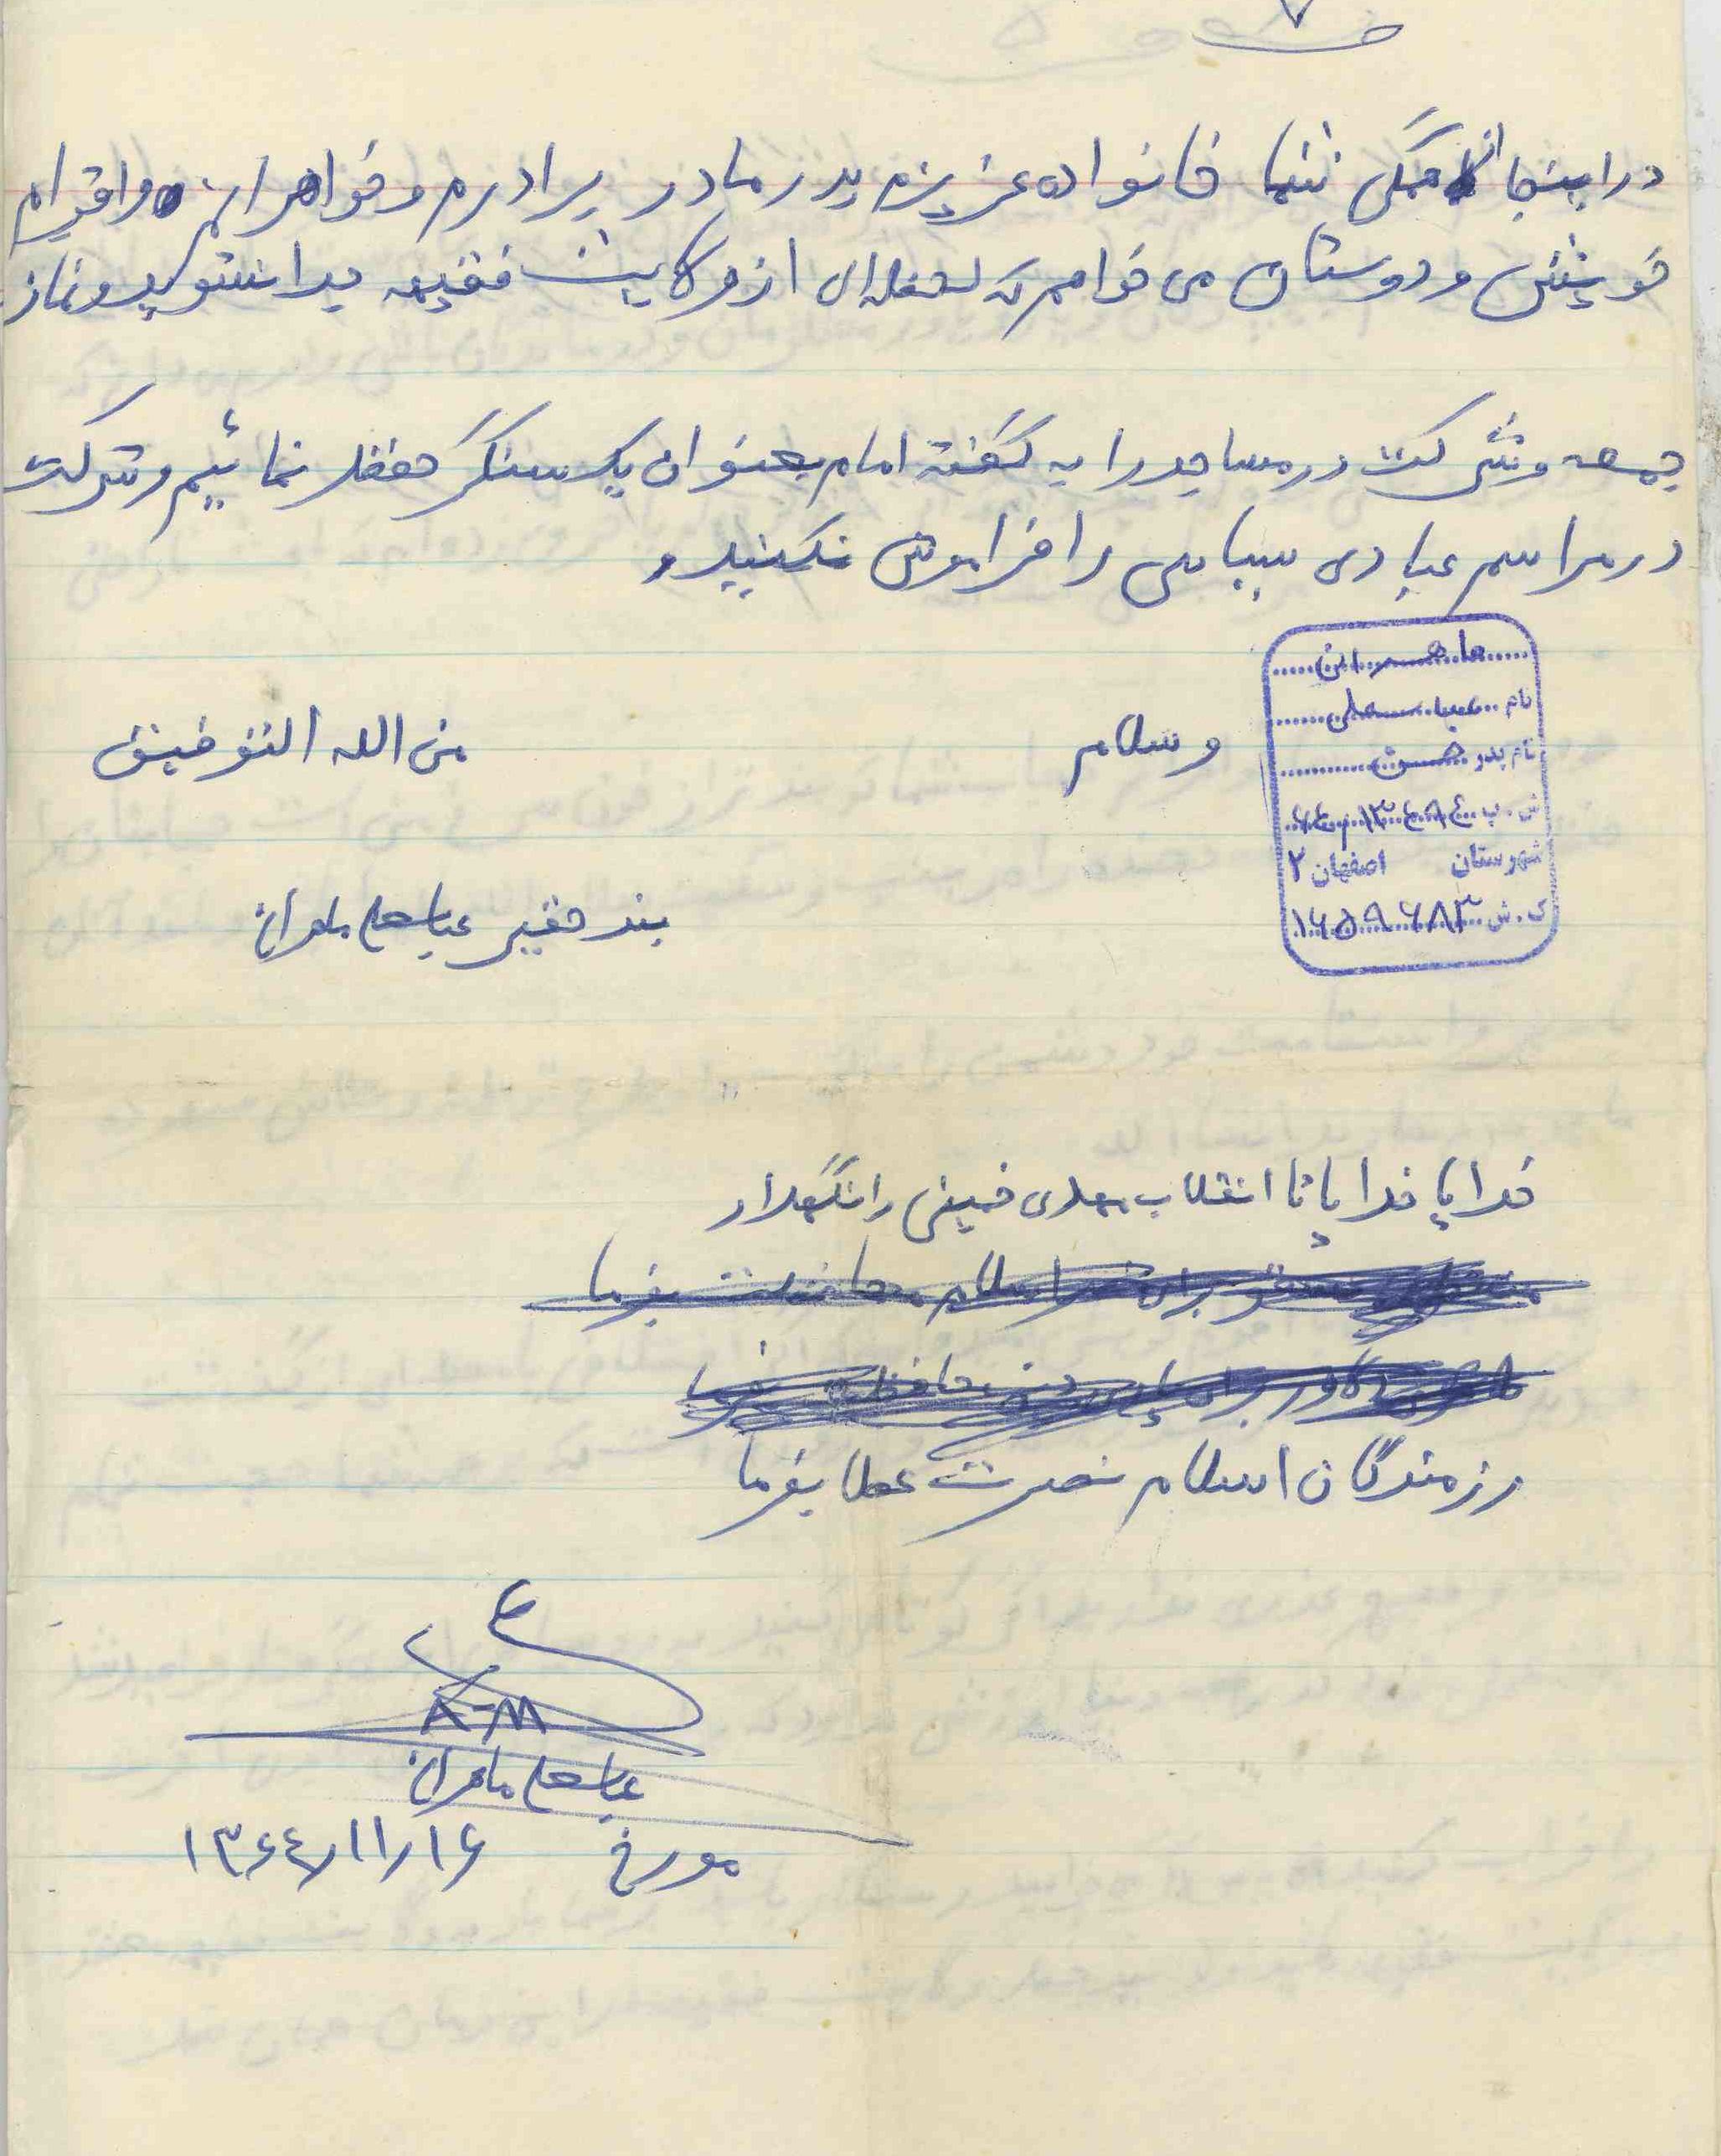 ۷
در اینجا از همگی شما خانواده عزیزم پدر مادر برادرم و خواهرانم و اقوام
خویش و دوستان می خواهم که لحظه ای از ولایت فقیه جدا نشوید و نماز
جمعه و شرکت در مساجد را به گفته امام بعنوان یک سنگر حفظ نمائیم و شرکت
در مراسم عبادی سیاسی را فراموش نکنید و
ماهرانی
نام عباسعلی
نام پدر حسن
شهرستان اصفهان ۲
ک.ش ۱۶۵۹۶۸۳
وسلام
من الله التوفیق
بنده حقیر عباسعلی ماهرانی
خدایا خدایا تا انقلاب مهدی خمینی را نگهدار
رزمندگان اسلام نصرت عطا بفرما
A-M
عباسعلی ماهرانی
مورخ ۱۳۶۴/۱۱/۱۶